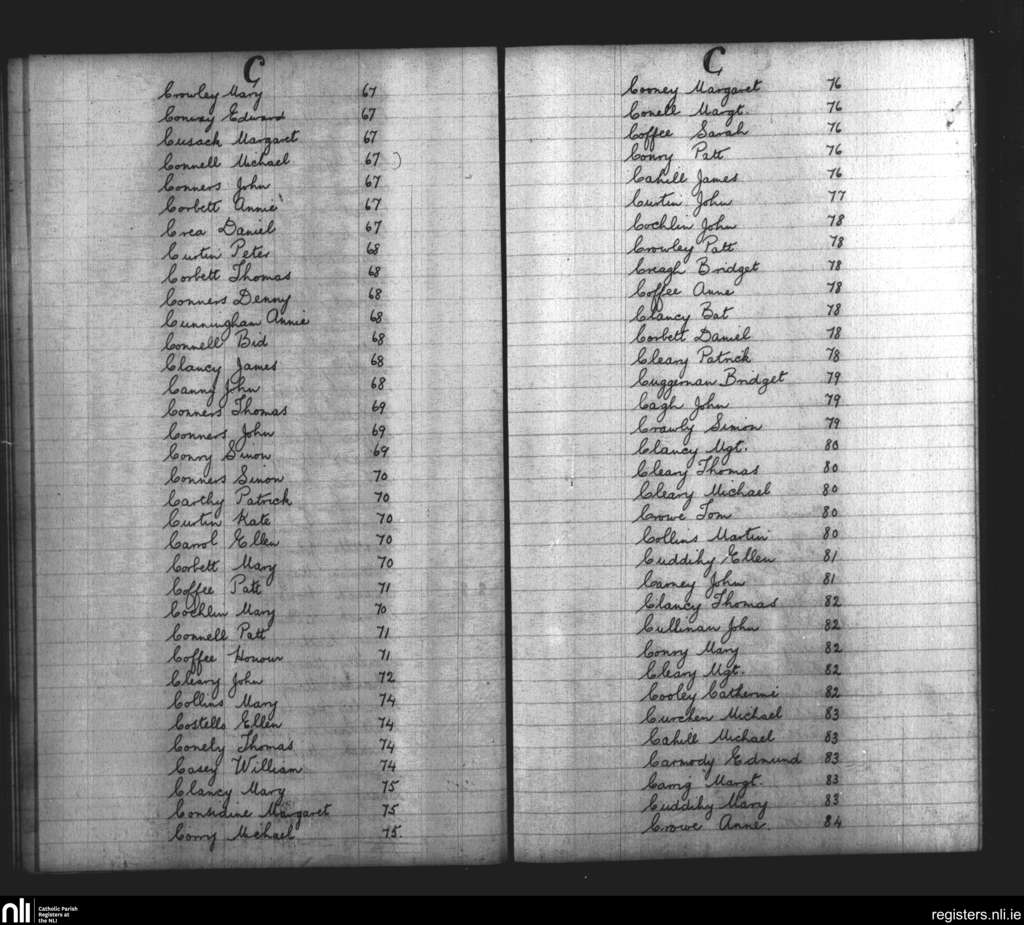 C
Crowley Mary 67
Conway Edward 67
Cusack Margaret 67
Connell Michael 67 )
Conners John 67
Corbett Annie 67
Crea Daniel 67
Curtin Peter 68
Corbett Thomas 68
Conners Denny 68
Cunninghan Annie 68
Connell Bid 68
Clancy James 68
Canny John 68
Conners Thomas 69
Conners John 69
Conry Simon 69
Conners Simon 70
Carthy Patrick 70
Curtin Kate 70
Carrol Ellen 70
Corbett Mary 70
Coffee Patt 71
Cochlin Mary 70
Connell Patt 71
Coffee Honour 71
Cleary John 72
Collins Mary 74
Costello Ellen 74
Conely Thomas 74
Casey William 74
Clancy Mary 75
Considine Margaret 75
Corry Michael 75
C
Cooney Margaret 76
Conell Margt. 76
Coffee Sarah 76
Conry Patt 76
Cahill James 76
Curtin John 77
Cochlin John 78
Crowley Patt 78
Creagh Bridget 78
Coffee Anne 78
Clancy Bat 78
Corbett Daniel 78
Cleary Patrick 78
Cuggernan Bridget 79
Cagh John 79
Crawly Simon 79
Clancy Mgt. 80
Cleary Thomas 80
Cleary Michael 80
Crowe Tom 80
Collins Martin 80
Cuddihy Ellen 81
Carney John 81
Clancy Thomas 82
Cullinan John 82
Conry Mary 82
Cleary Mgt. 82
Cooley Catherine 82
Curchen Michael 83
Cahill Michael 83
Carmody Edmund 83
Carrig Margt. 83
Cuddihy Mary 83
Crowe Anne 84
nli Catholic Parish
Registers at
the NLI
registers.nli.ie